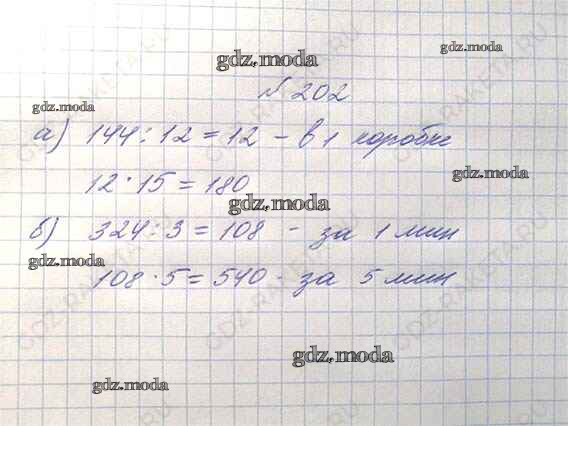 gdz.moda
gdz.moda
№ 202
gdz.moda
а) 144 : 12 = 12 – в 1 коробке
gdz.moda
12 · 15 = 180
gdz.moda
б) 324 : 3 = 108 - за 1 мин
gdz.moda
108 · 5 = 540 - за 5 мин
gdz.moda
gdz.moda